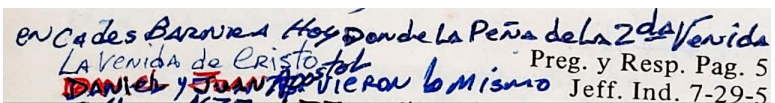 en Cades Barnea Hoy Donde La Peña de La 2da Venida
La Venida de Cristo
Preg. y Resp. Pag. 5
Daniel y Juan Apostol vieron lo mismo Jeff. Ind. 7-29-5